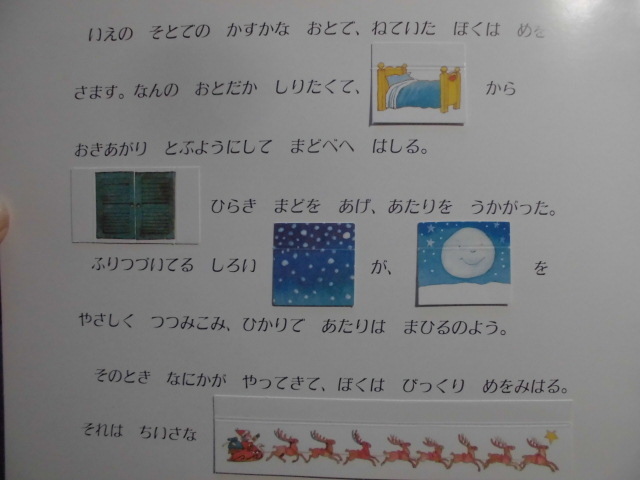 いえの そとでの かすかな おとで、ねていた ぼくは めを
さます。なんの おとだか しりたくて、 から
おきあがり とぶようにして まどべへ はしる。
ひらき まどを あげ、あたりを うかがった。
ふりつづいてる しろい が、 を
やさしく つつみこみ、ひかりで あたりは まひるのよう。
そのとき なにかが やってきて、ぼくは びっくり めをみはる。
それは ちいさな